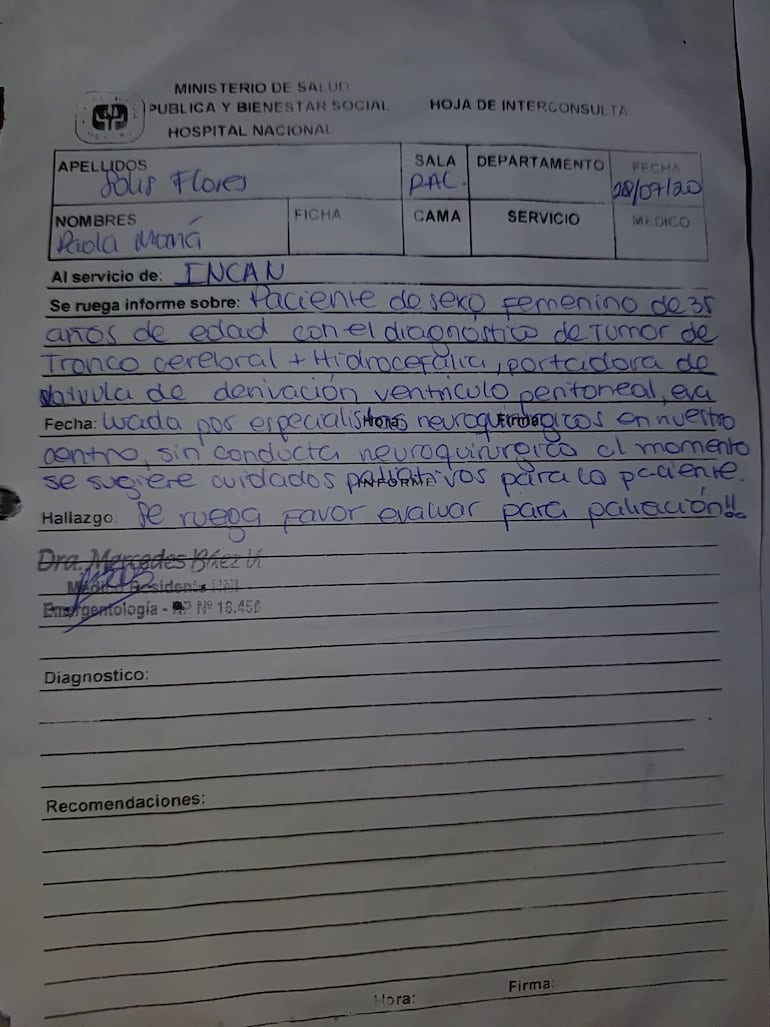 MINISTERIO DE SALUD
PUBLICA Y BIENESTAR SOCIAL
HOSPITAL NACIONAL
HOJA DE INTERCONSULTA
APELLIDOS Solis Flores
SALA RAC.
DEPARTAMENTO
FECHA 28/07/20
NOMBRES Paola Mamá
FICHA
CAMA
SERVICIO
MEDICO
Al servicio de: INCAN
Se ruega informe sobre: Paciente de sexo femenino de 35
años de edad con el diagnostico de Tumor de
Tronco cerebral + Hidrocefalia, portadora de
valvula de derivación ventriculo peritoneal, eva
Fecha: luada por especialistas neuroquirurgicos en nuestro
Hora: Firma:
centro, sin conducta neuroquirurgica al momento
se sugiere cuidados paliativos para la paciente.
INFORME
Hallazgo. Se ruega favor evaluar para paliación!!
Dra. Mercedes Báez U
Médico Residente HNI
Emergentología - RP Nº 16.456
Diagnostico:
Recomendaciones:
Hora: Firma: